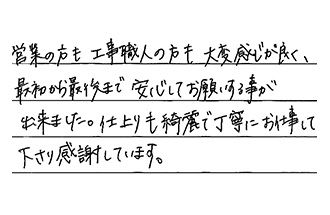 営業の方も工事職人の方も大変感じが良く、
最初から最後まで安心してお願いする事が
出来ました。仕上りも綺麗で丁寧にお仕事して
下さり感謝しています。